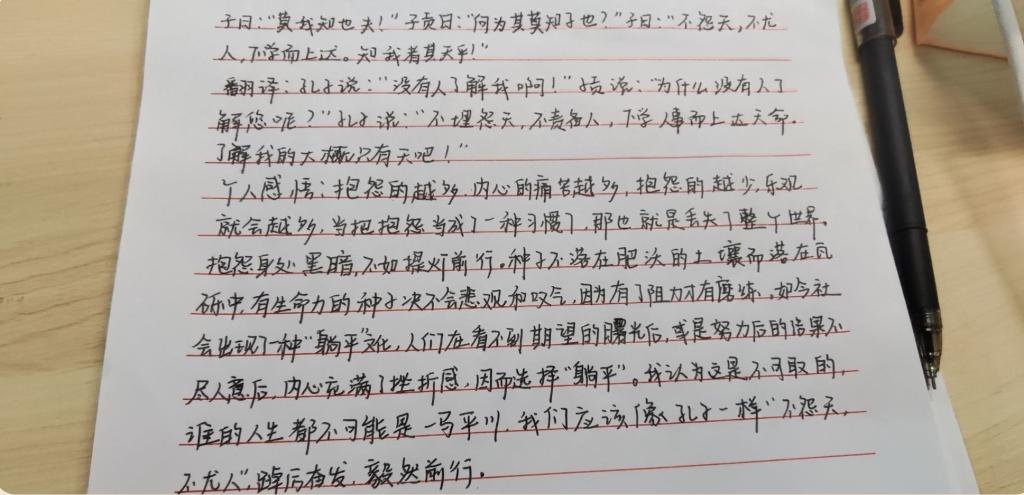 子曰:“莫我知也夫!”子贡曰:“何为其莫知子也?”子曰:“不怨天,不尤
人,下学而上达。知我者其天乎!”
翻译:孔子说:“没有人了解我啊!”子贡说:“为什么没有人了
解您呢?”孔子说:“不埋怨天,不责备人,下学人事而上达天命。
了解我的大概只有天吧!”
个人感悟:抱怨的越多,内心的痛苦越多,抱怨的越少,乐观
就会越多,当把抱怨当成了一种习惯了,那也就是丢失了整个世界。
抱怨身处黑暗,不如提灯前行。种子不落在肥沃的土壤而落在瓦
砾中,有生命力的种子决不会悲观和叹气,因为有了阻力才有磨练,如今社
会出现了一种“躺平”文化,人们在看不到期望的曙光后,或是努力后的结果不
尽人意后,内心充满了挫折感,因而选择“躺平”。我认为这是不可取的,
谁的人生都不可能是一马平川,我们应该像孔子一样“不怨天,
不尤人”,踔厉奋发,毅然前行。